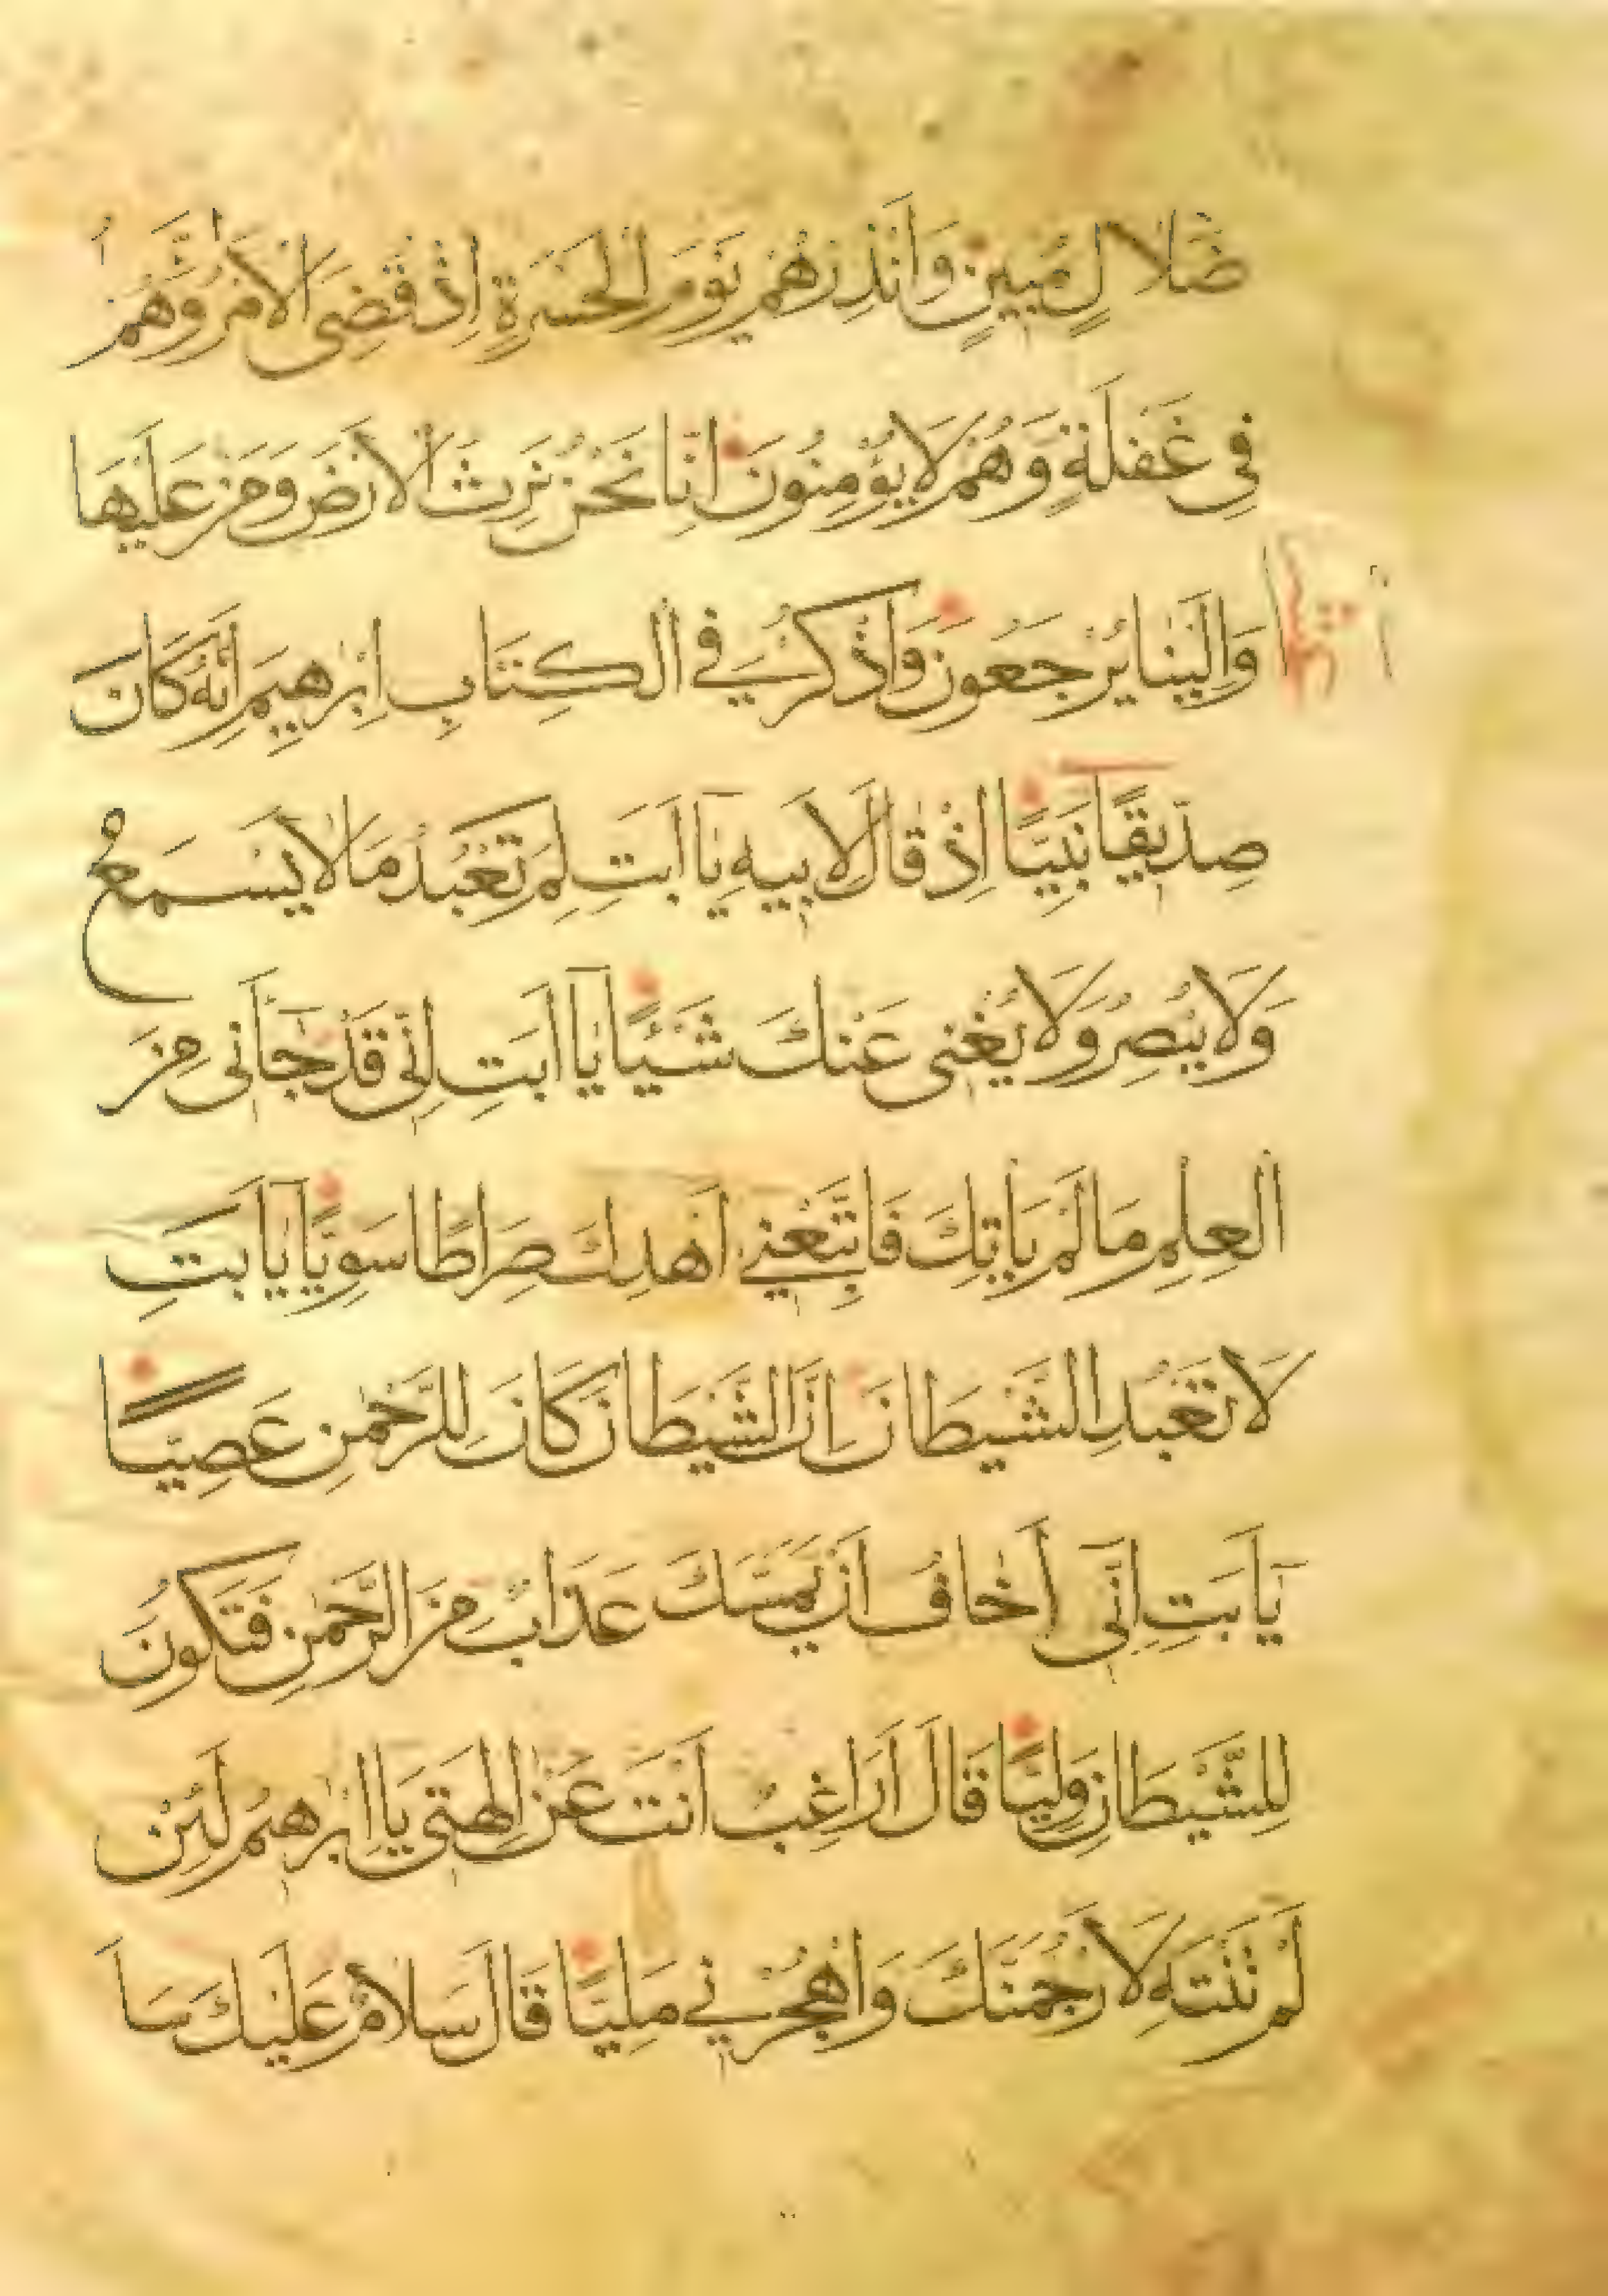 ضَلَالٍ مُبِينٍ وَأَنْذِرْهُمْ يَوْمَ الْحَسْرَةِ إِذْ قُضِيَ الْأَمْرُ وَهُمْ
فِي غَفْلَةٍ وَهُمْ لَا يُؤْمِنُونَ إِنَّا نَحْنُ نَرِثُ الْأَرْضَ وَمَنْ عَلَيْهَا
وَإِلَيْنَا يُرْجَعُونَ وَاذْكُرْ فِي الْكِتَابِ إِبْرٰهِيمَ إِنَّهُ كَانَ
صِدِّيقًا نَبِيًّا إِذْ قَالَ لِأَبِيهِ يَا أَبَتِ لِمَ تَعْبُدُ مَا لَا يَسْمَعُ
وَلَا يُبْصِرُ وَلَا يُغْنِي عَنْكَ شَيْئًا يَا أَبَتِ إِنِّي قَدْ جَاَنِي مِنَ
الْعِلْمِ مَا لَمْ يَأْتِكَ فَاتَّبِعْنِي أَهْدِكَ صِرَاطًا سَوِيًّا يَا أَبَتِ
لَا تَعْبُدِ الشَّيْطَانَ إِنَّ الشَّيْطَانَ كَانَ لِلرَّحْمٰنِ عَصِيًّا
يَا أَبَتِ إِنِّي أَخَافُ أَنْ يَمَسَّكَ عَذَابٌ مِنَ الرَّحْمٰنِ فَتَكُونَ
لِلشَّيْطَانِ وَلِيًّا قَالَ أَرَاغِبٌ أَنْتَ عَنْ اٰلِهَتِي يَا إِبْرٰهِيمُ لَئِنْ
لَمْ تَنْتَهِ لَأَرْجُمَنَّكَ وَاهْجُرْنِي مَلِيًّا قَالَ سَلَامٌ عَلَيْكَ سَأَ